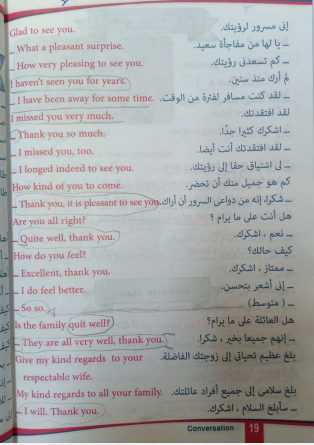 Glad to see you. إنى مسرور لرؤيتك.
_ What a pleasant surprise. _ يا لها من مفاجأة سعيد.
_ How very pleasing to see you. _ كم تسعدنى رؤيتك.
I haven't seen you for years. لم أرك منذ سنين.
_ I have been away for some time. _ لقد كنت مسافر لفترة من الوقت.
I missed you very much. لقد افتقدتك.
_ Thank you so much. _ اشكرك كثيرا جدًا.
_ I missed you, too. _ لقد افتقدتك أنت أيضا.
_ I longed indeed to see you. _ لى اشتياق حقا إلى رؤيتك.
How kind of you to come. كم هو جميل منك أن تحضر.
_ Thank you, it is pleasant to see you. _ شكرا، إنه من دواعى السرور أن أراك.
Are you all right? هل أنت على ما يرام ؟
_ Quite well, thank you. _ نعم ، اشكرك.
How do you feel? كيف حالك؟
_ Excellent, thank you. _ ممتاز ، اشكرك.
_ I do feel better, _ إنى أشعر بتحسن.
_ So so. _ ( متوسط )
Is the family quit well? هل العائلة على ما يرام؟
_ They are all very well, thank you. _ إنهم جميعا بخير ، شكرا.
Give my kind regards to your بلغ عظيم تحياتى إلى زوجتك الفاضلة.
respectable wife.
My kind regards to all your family. بلغ سلامى إلى جميع أفراد عائلتك.
_ I will. Thank you. _ سأبلغ السلام ، اشكرك.
Conversation 19